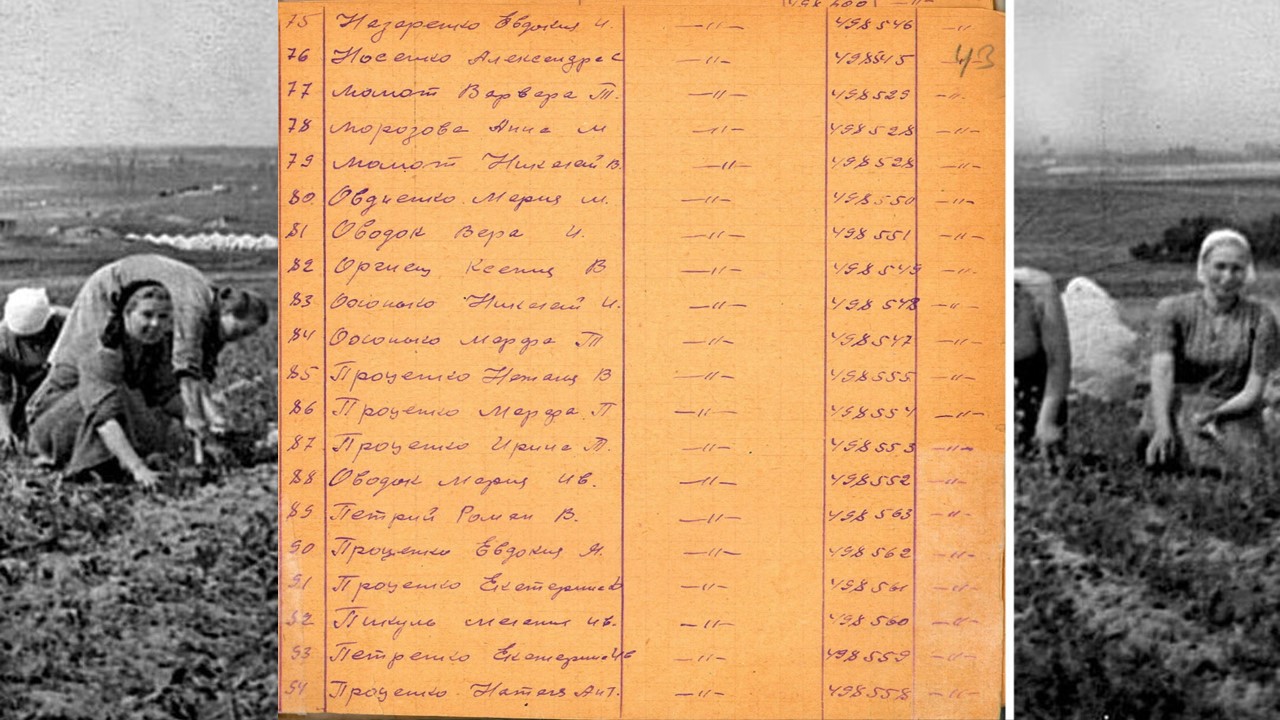 75 Назаренко Евдокия И. —"— 498546 —"—
76 Носенко Александра С —"— 498545 —"— 43
77 Момот Варвара Т. —"— 498529 —"—
78 Морозова Анна М —"— 498528 —"—
79 Момот Николай В. —"— 498528 —"—
80 Овдиенко Мария М. —"— 498550 —"—
81 Ободок Вера И. —"— 498551 —"—
82 Ксения В —"— 498549 —"—
83 Осонько Николай И. —"— 498548 —"—
84 Осонько Марфа Т —"— 498547 —"—
85 Проценко Наталия В —"— 498555 —"—
86 Проценко Марфа П —"— 498554 —"—
87 Проценко Ирина Т. —"— 498553 —"—
88 Ободок Мария Ив. —"— 498552 —"—
89 Петрий Роман В. —"— 498563 —"—
90 Проценко Евдокия —"— 498562 —"—
91 Проценко Екатерина —"— 498561 —"—
92 Пикуль Ив. —"— 498560 —"—
93 Петренко Екатерина —"— 498559 —"—
94 Проценко Ант. —"— 498558 —"—